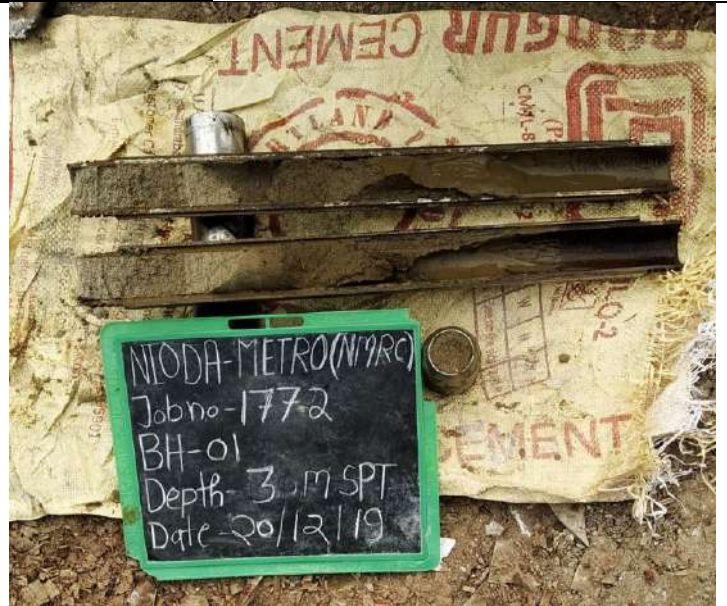 CEMENT
RTLAND
NIODA-METRO(NMRC)
Job no-1772
BH-01
Depth- 3 m SPT
Date-20/12/19
CEMENT